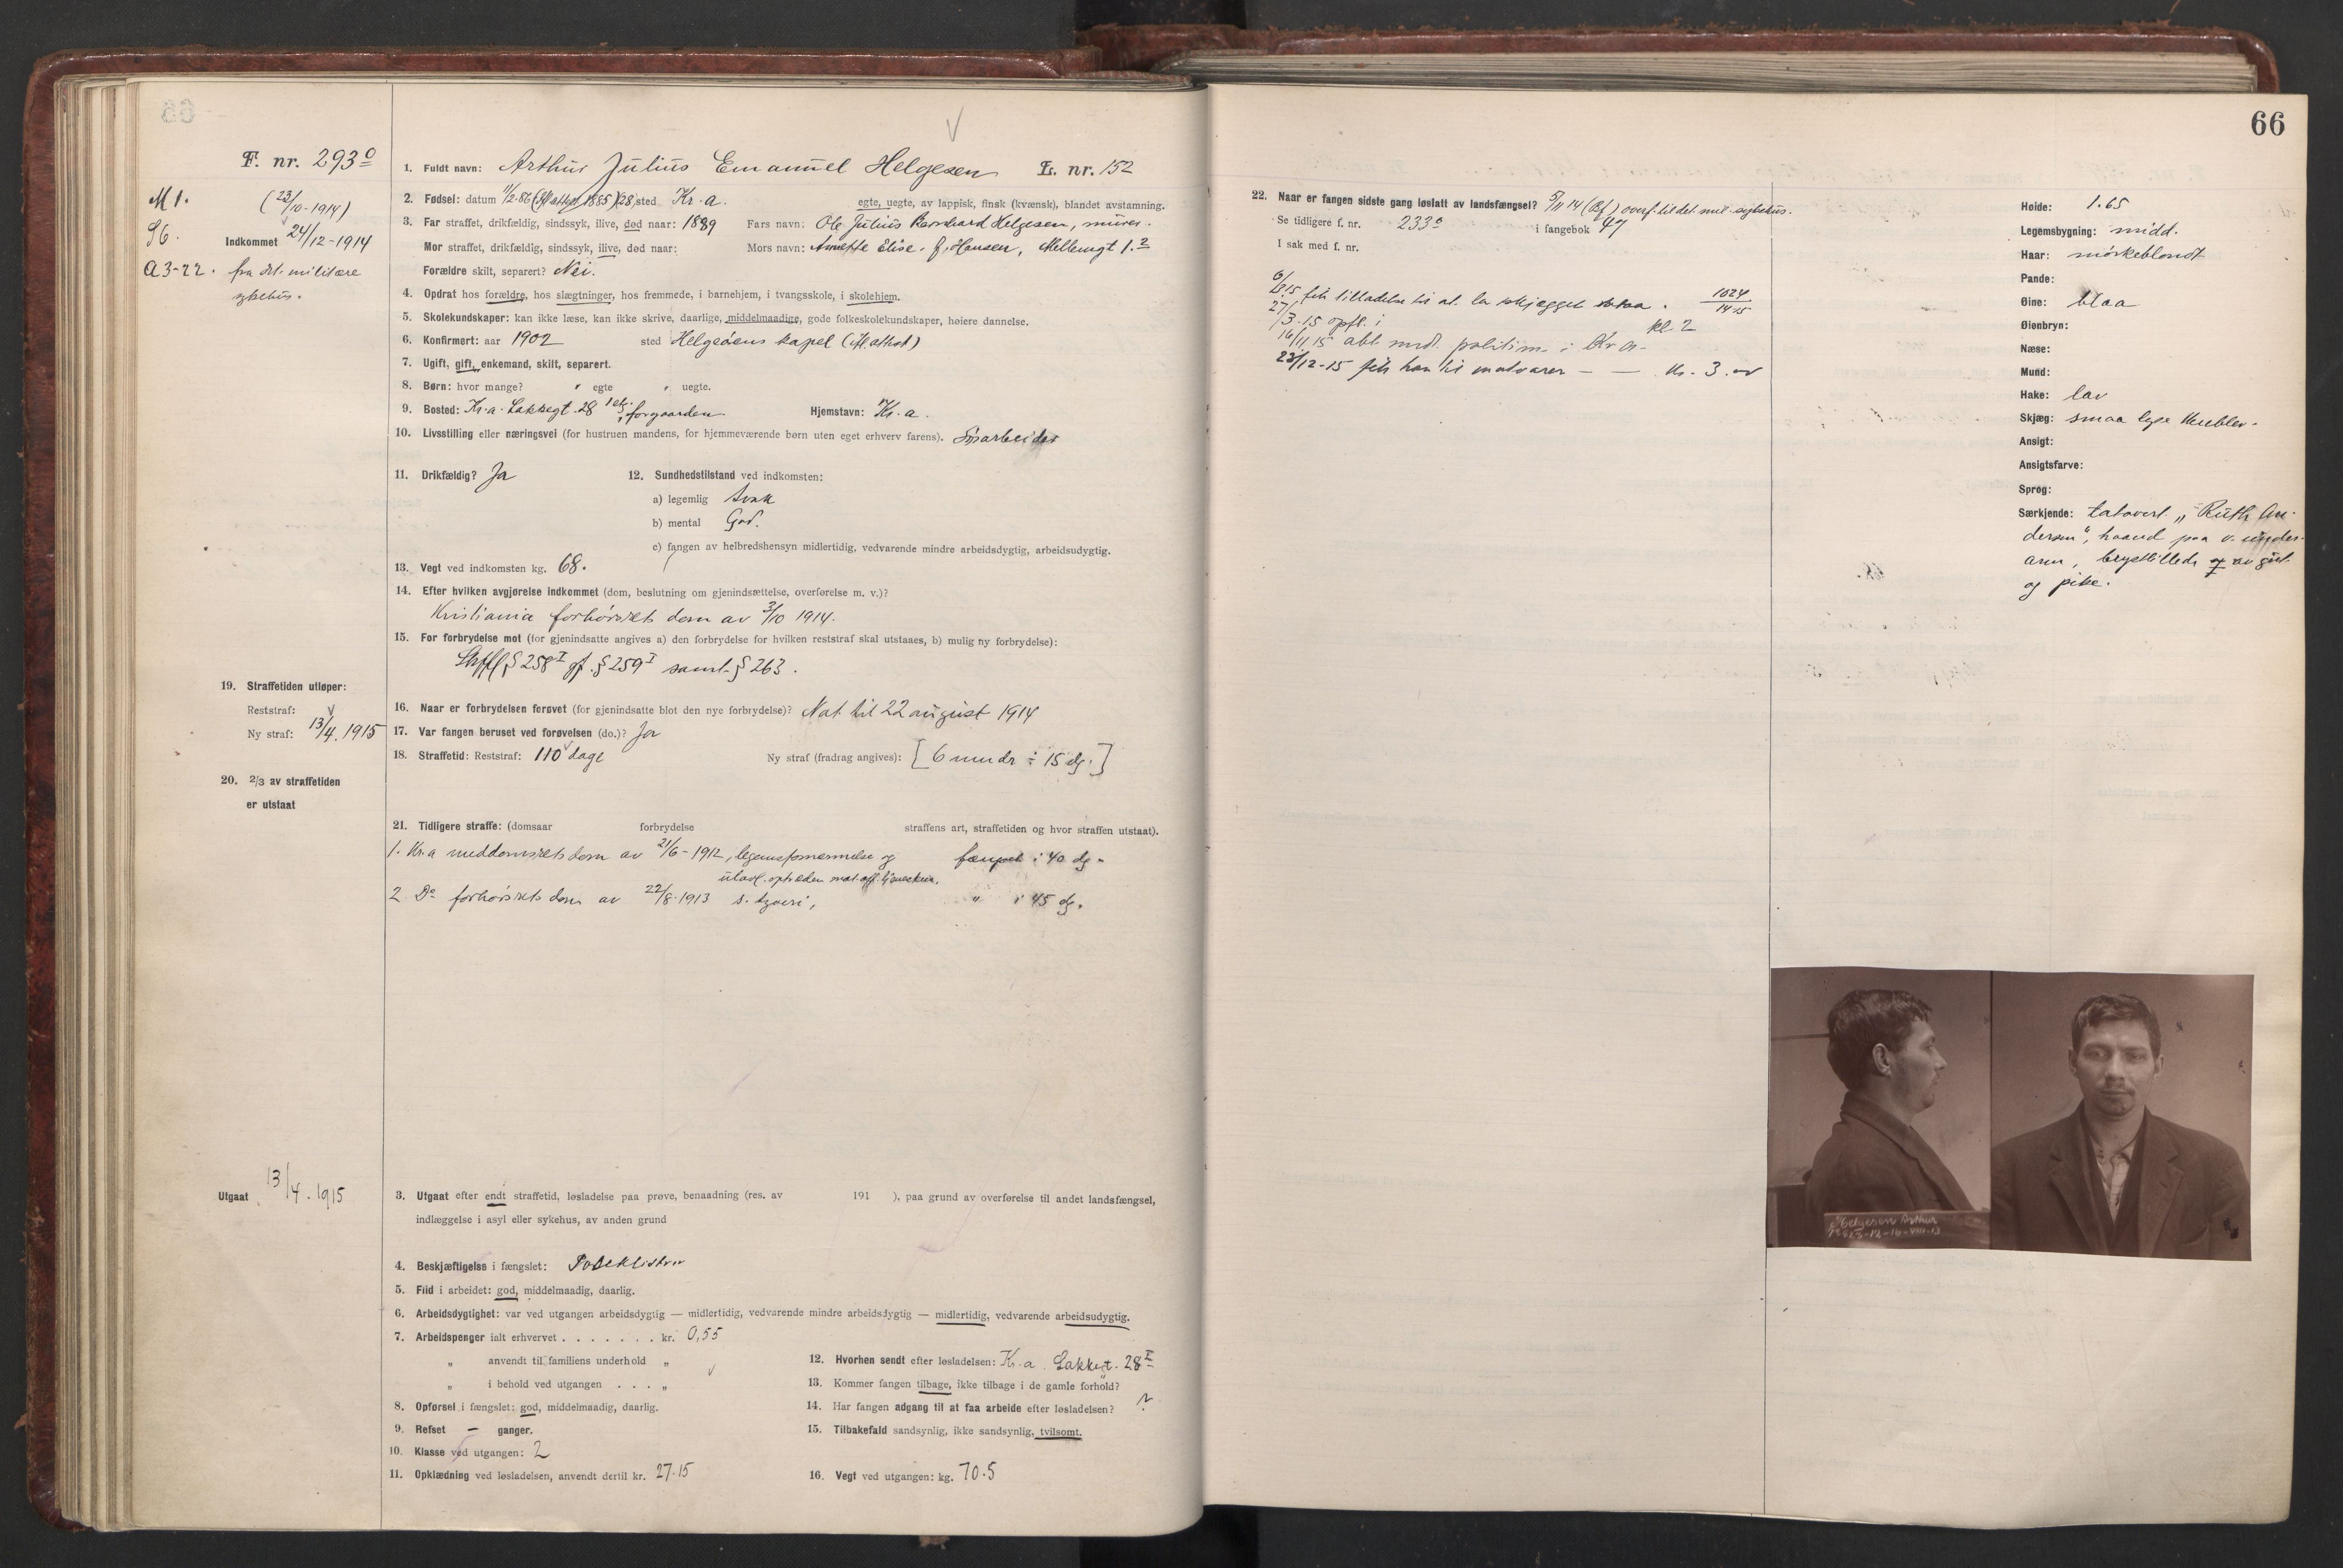 F. nr. 293º
M 1.
(23/10-1914)
96.
Indkommet 24/12-1914
A 3-22. fra det militære
sykehus.
1. Fuldt navn: Arthur Julius Emanuel Helgesen L. nr. 152
2. Fødsel: datum 11/2.86 1885) 28, sted Kr.a. egte, uegte, av lappisk, finsk (kvænsk), blandet avstamning.
3. Far straffet, drikfældig, sindssyk, ilive, død naar: 1889 Fars navn: Ole Julius Bernhard Helgesen, murer.
Mor straffet, drikfældig, sindssyk, ilive, død naar: Mors navn: Annette Elise f. Hansen, Mellemgt 1.2
Forældre skilt, separert? Nei.
4. Opdrat hos forældre, hos slægtninger, hos fremmede, i barnehjem, i tvangsskole, i skolehjem.
5. Skolekundskaper: kan ikke læse, kan ikke skrive, daarlige, middelmaadige, gode folkeskolekundskaper, høiere dannelse.
6. Konfirmert: aar 1902 sted Helgeøens kapel (ifl. attest)
7. Ugift, gift, enkemand, skilt, separert.
8. Børn: hvor mange? " egte " uegte.
9. Bosted: Kr.a. Lakkegt. 28 1 etg. forgaarden. Hjemstavn: Kr.a.
10. Livsstilling eller næringsvei (for hustruen mandens, for hjemmeværende børn uten eget erhverv farens). Gruarbeider
11. Drikfældig? Ja 12. Sundhedstilstand ved indkomsten:
a) legemlig svak
b) mental God.
c) fangen av helbredshensyn midlertidig, vedvarende mindre arbeidsdygtig, arbeidsudygtig.
13. Vegt ved indkomsten kg. 68.
14. Efter hvilken avgjørelse indkommet (dom, beslutning om gjenindsættelse, overførelse m. v.)?
Kristiania forhørsrets dom av 3/10 1914.
15. For forbrydelse mot (for gjenindsatte angives a) den forbrydelse for hvilken reststraf skal utstaaes, b) mulig ny forbrydelse):
Strfl § 258 I jf. § 259 I samt § 263.
16. Naar er forbrydelsen forøvet (for gjenindsatte blot den nye forbrydelse)? Nat til 22 august 1914
17. Var fangen beruset ved forøvelsen (do.)? Ja
18. Straffetid: Reststraf: 110 dage Ny straf (fradrag angives): [6 mndr ÷ 15 dg.]
19. Straffetiden utløper:
Reststraf:
Ny straf: 13/4. 1915
20. 2/3 av straffetiden
er utstaat
21. Tidligere straffe: (domsaar forbrydelse straffens art, straffetiden og hvor straffen utstaat).
1. Kr.a meddomsrets dom av 21/6-1912, legemsfornærmelse og fængsel i 40 dg.
utøvl. optræden mot off. tjenestem.
2. Do forhørsrets dom av 22/8.1913 s. tyveri, " i 45 dg.
Utgaat 13/4. 1915
3. Utgaat efter endt straffetid, løsladelse paa prøve, benaadning (res. av 191 ), paa grund av overførelse til andet landsfængsel,
indlæggelse i asyl eller sykehus, av anden grund
4. Beskjæftigelse i fængslet: Poseklistrer
5. Flid i arbeidet: god, middelmaadig, daarlig.
6. Arbeidsdygtighet: var ved utgangen arbeidsdygtig — midlertidig, vedvarende mindre arbeidsdygtig — midlertidig, vedvarende arbeidsudygtig.
7. Arbeidspenger ialt erhvervet . . . . . . . kr. 0,55
" anvendt til familiens underhold "
" i behold ved utgangen . . . "
8. Opførsel i fængslet: god, middelmaadig, daarlig.
9. Refset — ganger.
10. Klasse ved utgangen: 2
11. Opklædning ved løsladelsen, anvendt dertil kr. 27.15
12. Hvorhen sendt efter løsladelsen: Kr.a. Lakkegt. 28 I
13. Kommer fangen tilbage, ikke tilbage i de gamle forhold?
14. Har fangen adgang til at faa arbeide efter løsladelsen? ?
15. Tilbakefald sandsynlig, ikke sandsynlig, tvilsomt.
16. Vegt ved utgangen: kg. 70.5
66
22. Naar er fangen sidste gang løslatt av landsfængsel? 5/11 14 (Bf.) overf. til det mil. sykehus.
Se tidligere f. nr. 233º i fangebok 47
I sak med f. nr.
6/2.15 fik tilladelse til at la skjægget staa. 1024/1415
27/3-15 opfl. i kl. 2
16/11 15 politim. i Kr.a.
23/12-15 fik han til matvarer — — kr. 3.00
Høide: 1.65
Legemsbygning: midd.
Haar: mørkeblondt
Pande:
Øine: blaa
Øienbryn:
Næse:
Mund:
Hake: lav
Skjæg: smaa lyse
Ansigt:
Ansigtsfarve:
Sprog:
Særkjende: tatovert „Ruth An-
dersen", haand paa v. under-
arm, brystbillede av gut
og pike.
Helgesen Arthur